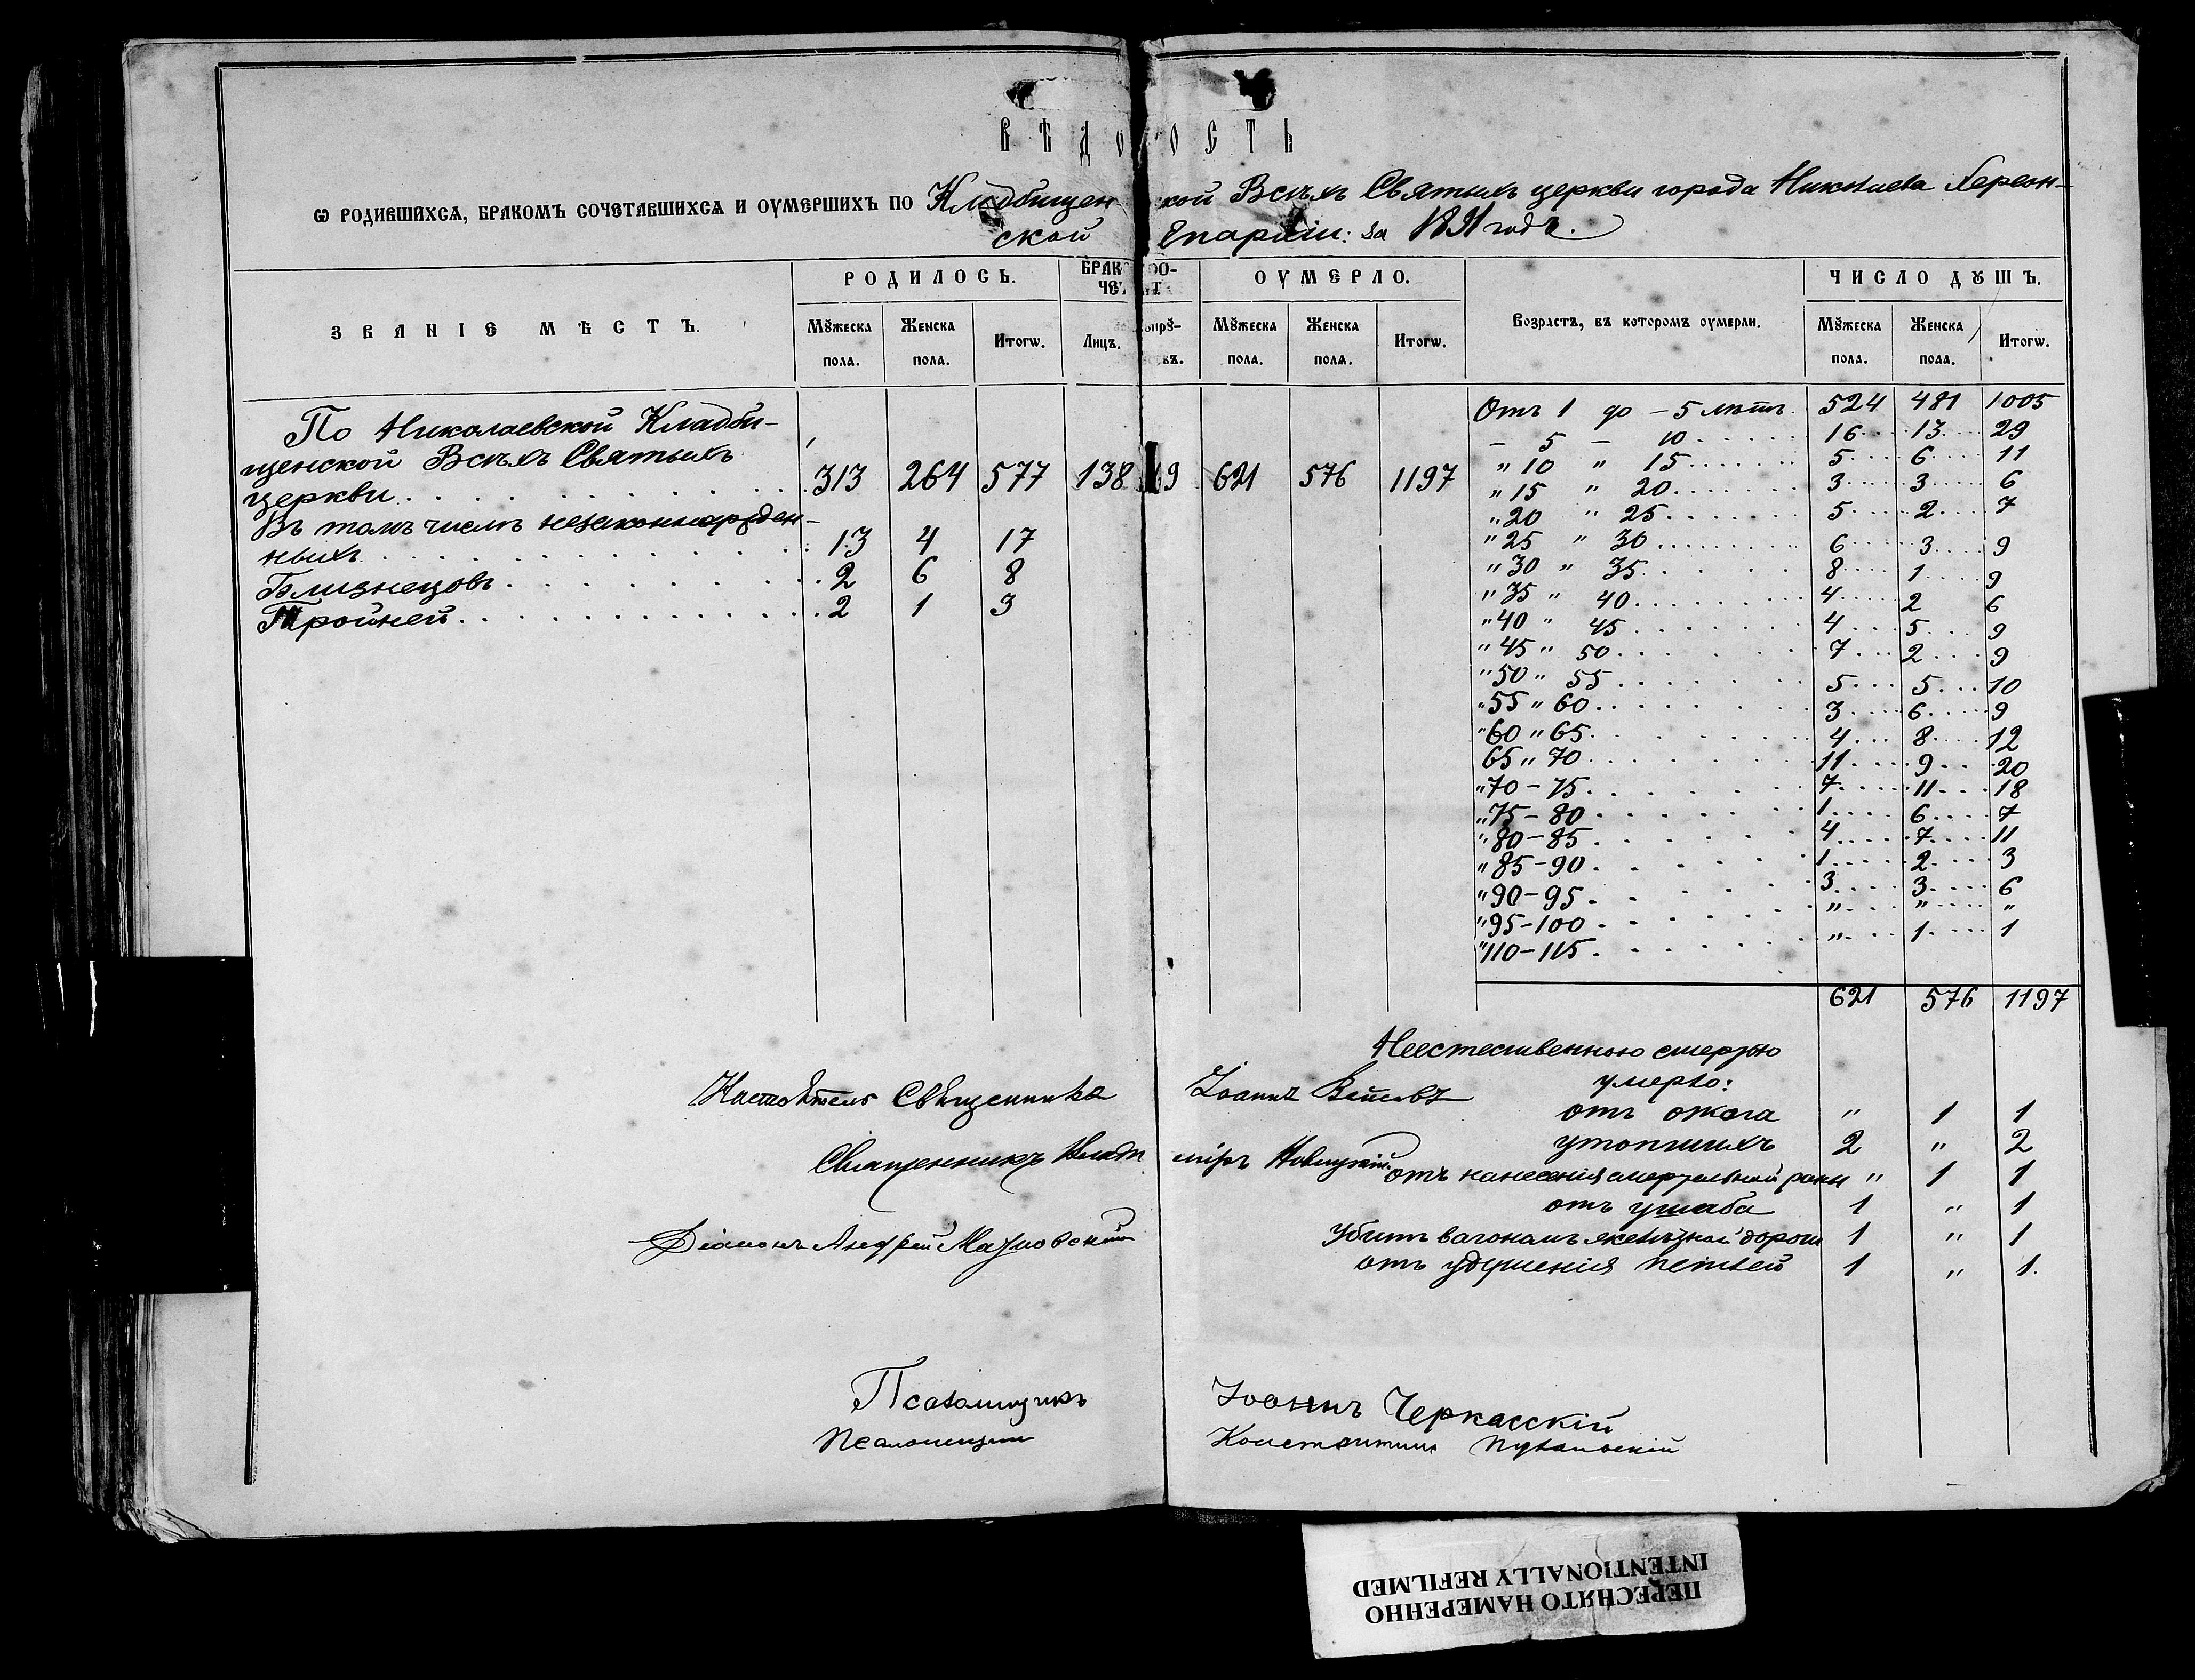 ВѢДОМОСТЬ
Ѡ РОДИВШИХСЯ, БРАКОМЪ СОЧЕТАВШИХСЯ И ОУМЕРШИХЪ ПО Кладбищенской Всѣхъ Святыхъ церкви города Николаева Херсон-
ской Епархіи: за 1891 годъ.
ЗВАНІЕ МѢСТЪ. РОДИЛОСЬ. ОУМЕРЛО. Возрастъ, въ которомъ оумерли. ЧИСЛО ДꙊШЪ.
Мꙋжеска пола. Женска пола. Итогѡ. Лицъ. Мꙋжеска пола. Женска пола. Итогѡ. Мꙋжеска пола. Женска пола. Итогѡ.
По Николаевской Кладби-
щенской Всѣхъ Святыхъ
церкви 313 264 577 138 69 621 576 1197
Въ томъ числѣ незаконнорожден-
ныхъ 13 4 17
Близнецовъ 2 6 8
Тройней 2 1 3
Отъ 1 до - 5 лѣтъ. 524 481 1005
- 5 - 10 16 13 29
" 10 " 15 5 6 11
" 15 " 20 3 3 6
" 20 " 25 5 2 7
" 25 " 30 6 3 9
" 30 " 35 8 1 9
" 35 " 40 4 2 6
" 40 " 45 4 5 9
" 45 " 50 7 2 9
" 50 " 55 5 5 10
" 55 " 60 3 6 9
" 60 " 65 4 8 12
65 " 70 11 9 20
" 70 - 75 7 11 18
" 75 - 80 1 6 7
" 80 - 85 4 7 11
" 85 - 90 1 2 3
" 90 - 95 3 3 6
" 95 - 100 " " "
" 110 - 115 " 1 1
621 576 1197
Неестественною смертью
умерло:
отъ ожога " 1 1
утопшихъ 2 " 2
отъ нанесенія смертельной раны " 1 1
отъ ушиба 1 " 1
Убитъ вагономъ желѣзной дороги 1 " 1
отъ удушенія петлей 1 " 1.
Настоятель Священникъ Іоаннъ
Священникъ Владиміръ Новицкій
Діаконъ Андрей
Псаломщикъ Іоаннъ Черкасскій
Псаломщикъ Константинъ
ПЕРЕСНЯТО НАМЕРЕННО
INTENTIONALLY REFILMED